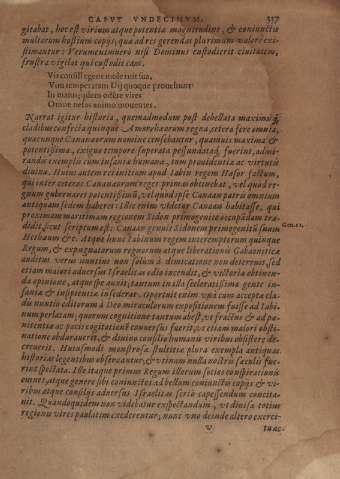 CAPVT VNDECIMVM. 317
gitabat, hoc est virium atque potentia magnitudine, & coniunctis
multorum hostium copijs, qua ad res gerendas plurimum valere exi-
stimantur: Verumenimuero nisi Dominus custodierit ciuitatem,
frustra vigilat qui custodit eam.
Vis consilî expers mole ruit sua,
Vim temperatam Dij quoque prouehunt
In maius, ijdem odere vires
Omne nefas animo mouentes.
Narrat igitur historia, quemadmodum post debellata maximis
cladibus confecta quinque Amorhaeorum regna, cetera fere omnia,
quacunque Cananaeorum nomine censebantur, quamuis maxima &
potentissima, exiguo tempore superata pessundataq; fuerint, admi-
rando exemplo cum insania humana, tum prouidentia ac virtutis
diuina. Huius autem recensitum apud Iabin regem Hasor factum,
qui inter ceteras Cananaeorum reges primas obtinebat, vel quod re-
gnum gubernaret potentissimum, vel quod ipse Canaan patris omnium
antiquam sedem haberet: Illic enim videtur Canaan habitasse, qui
proximam maritimam regionem Sidon primogenito occupandam tra-
didit, sicut scriptum est: Canaan genuit Sidonem primogenitum suum Gen. 10.
Hethaeum &c. Atque hunc Iabinum regem interemptorum quinque
Regum, & expugnatarum regnorum atque liberationis Gabaonitica
auditus verus nuntius non solum à dimicatione non deterruit, sed
etiam maiori aduersus Israelitas odio incendit, & victoria obtinen-
da opinione, atque spe auxit, tantum in illa sceleratissima gente in-
sania & insipientia insederat. Oportuit enim vnà cum accepta cla-
dis nuntio editorum à Deo miraculorum expositionem fuisse ad Iabi-
num perlatam, quorum cognitione tantum abest, vt fractus & ad pœ-
nitentiæ ac pacis cogitationē conuersus fuerit, vt etiam maiori obsti-
natione obduruerit, & diuino consilio humanis viribus obsistere de-
creuerit. Huiusmodi monstrosa stultitia plura exempla antiquas
historias legentibus obseruantur, & vtinam nulla nostri sæculi fuis-
sent spectata. Ille itaque primus Regum illorum socios conspirationis
omnes, atque genere sibi coniunctos ad bellum coniunctis copijs & vi-
ribus atque consilijs aduersus Israelitas serio capessendum concita-
uit. Quandoquidem non videbatur expectandum, vt diuisa totius
regionis vires paulatim excederentur, nunc vno deinde altero exerci-
V tu ac